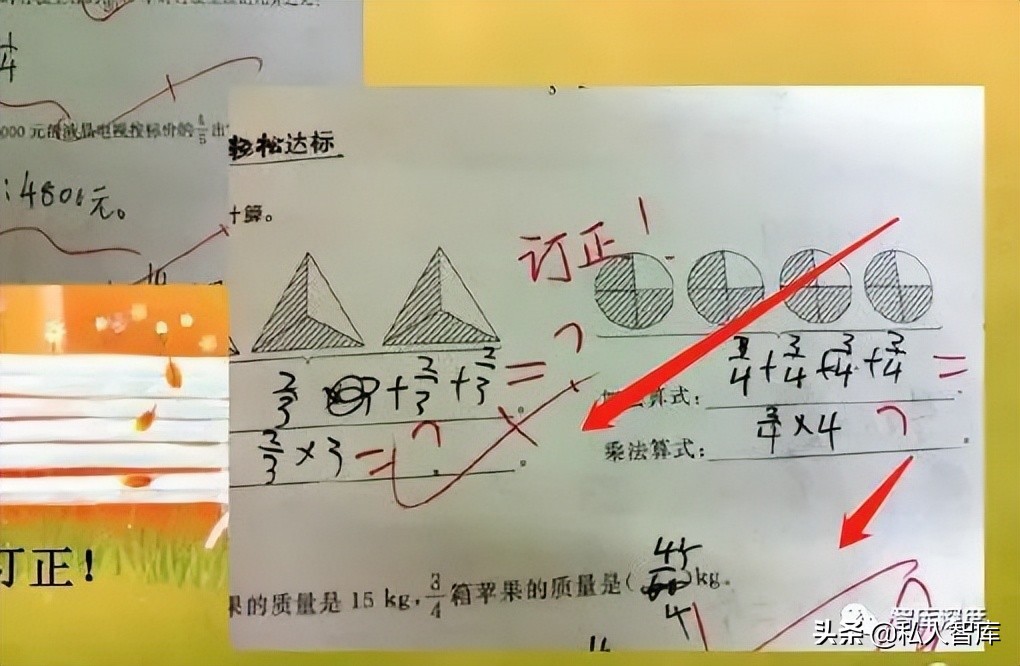 1/4
000 元的液晶电视按标价的 4/5 出
:4800元。
轻松达标
计算。
订正!
2/3 + 2/3 + 2/3 = ?
3/4 + 3/4 + 3/4 + 3/4 =
加法算式:
2/3 × 3 = ?
乘法算式: 3/4 × 4 ?
订正!
果的质量是 15 kg, 3/4 箱苹果的质量是( 45/4 )kg。
智库深度
头条 @私人智库